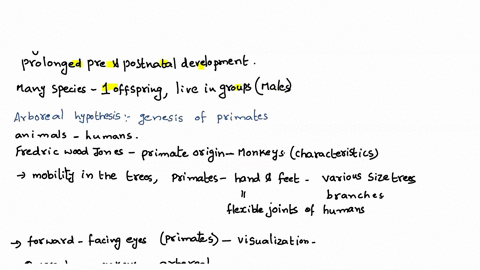 prolonged pre & postnatal development.
Many species - 1 offspring, live in groups (Males)
Arboreal hypothesis:- genesis of primates
animals - humans.
Fredric wood Jones - primate origin - Monkeys (characteristics)
→ mobility in the trees, primates - hand & feet - various size trees
branches
flexible joints of humans
→ forward - facing eyes (primates) - visualization -